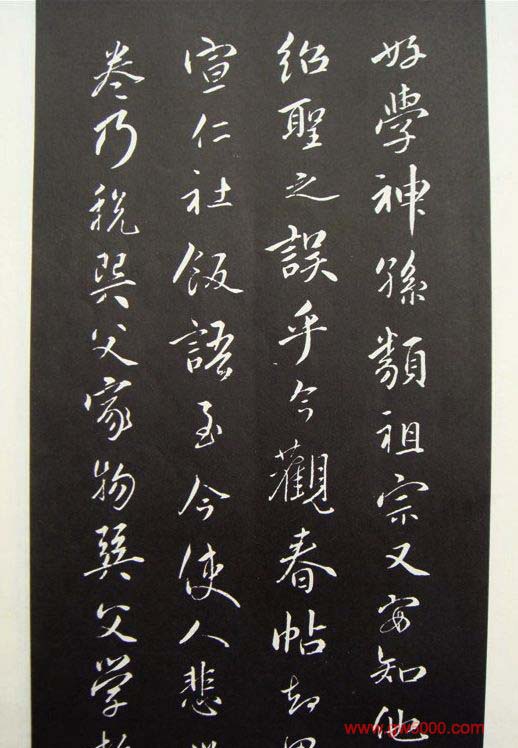 好學神孫類祖宗又安知他
紹聖之誤乎今觀春帖却思
宣仁社飯語至今使人悲
卷乃税巽父家物巽父学
www.gw5000.com